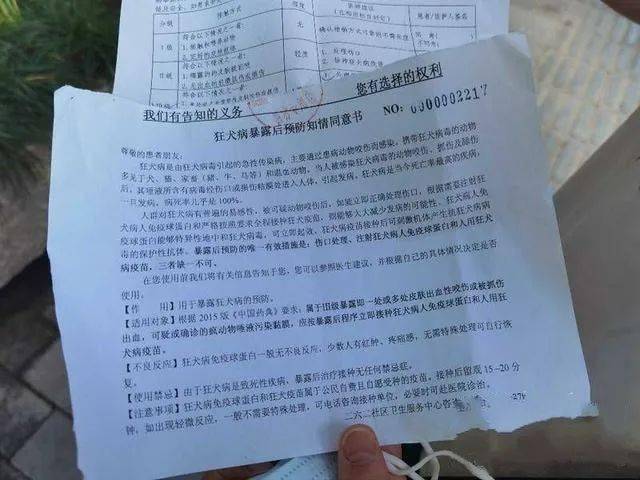 分级
接触方式
符合以下情况之一者:
Ⅰ级
无
确认接触方式可靠则不需处置
符合以下情况之一者:
轻度
1. 处理伤口
2. 接种狂犬疫苗
符合以下情况之一者:
我们有告知的义务 您有选择的权利
狂犬病暴露后预防知情同意书 NO: 000003217
尊敬的患者朋友:
狂犬病是由狂犬病毒引起的急性传染病,主要通过患病动物咬伤而感染,携带狂犬病毒的动物
多见于犬、猫、家畜(猪、牛、马等)和温血动物。当人被感染狂犬病毒的动物咬伤、抓伤及舔伤
后,其唾液所含有病毒经伤口或损伤粘膜处进入人体,引起发病。狂犬病是当今死亡率最高的疾病,
一旦发病,病死率几乎是 100%。
人群对狂犬病有普遍的易感性。被可疑动物咬伤后,如能立即正确处理伤口,根据需要注射狂
犬病人免疫球蛋白和严格按照要求全程接种狂犬疫苗,则能够大大减少发病的可能性。狂犬病人免
疫球蛋白能够特异性地中和狂犬病毒,可立即起效,狂犬病疫苗接种后可刺激机体产生抗狂犬病病
毒的保护性抗体。暴露后预防的唯一有效措施是:伤口处理、注射狂犬病人免疫球蛋白和人用狂犬
病疫苗,三者缺一不可。
在您使用前我们将有关信息告知于您,您可以参照医生建议,并根据自己的具体情况决定是否
使用。
【作 用】用于暴露狂犬病的预防。
【适用对象】根据 2015 版《中国药典》要求:属于Ⅲ级暴露即一处或多处皮肤出血性咬伤或被抓伤
出血,可疑或确诊的疯动物唾液污染黏膜,应按暴露后程序立即接种狂犬病人免疫球蛋白和人用狂
犬病疫苗。
【不良反应】狂犬病免疫球蛋白一般无不良反应,少数人有红肿、疼痛感,无需特殊处理可自行恢
复。
【使用禁忌】由于狂犬病是致死性疾病,暴露后治疗接种无任何禁忌症。
【注意事项】狂犬病免疫球蛋白和狂犬疫苗属于公民自费且自愿受种的疫苗。接种后留观 15-20 分
钟,如出现轻微反应,一般不需要特殊处理,可电话咨询接种单位,必要时可赴医院诊治。
二六二社区卫生服务中心咨